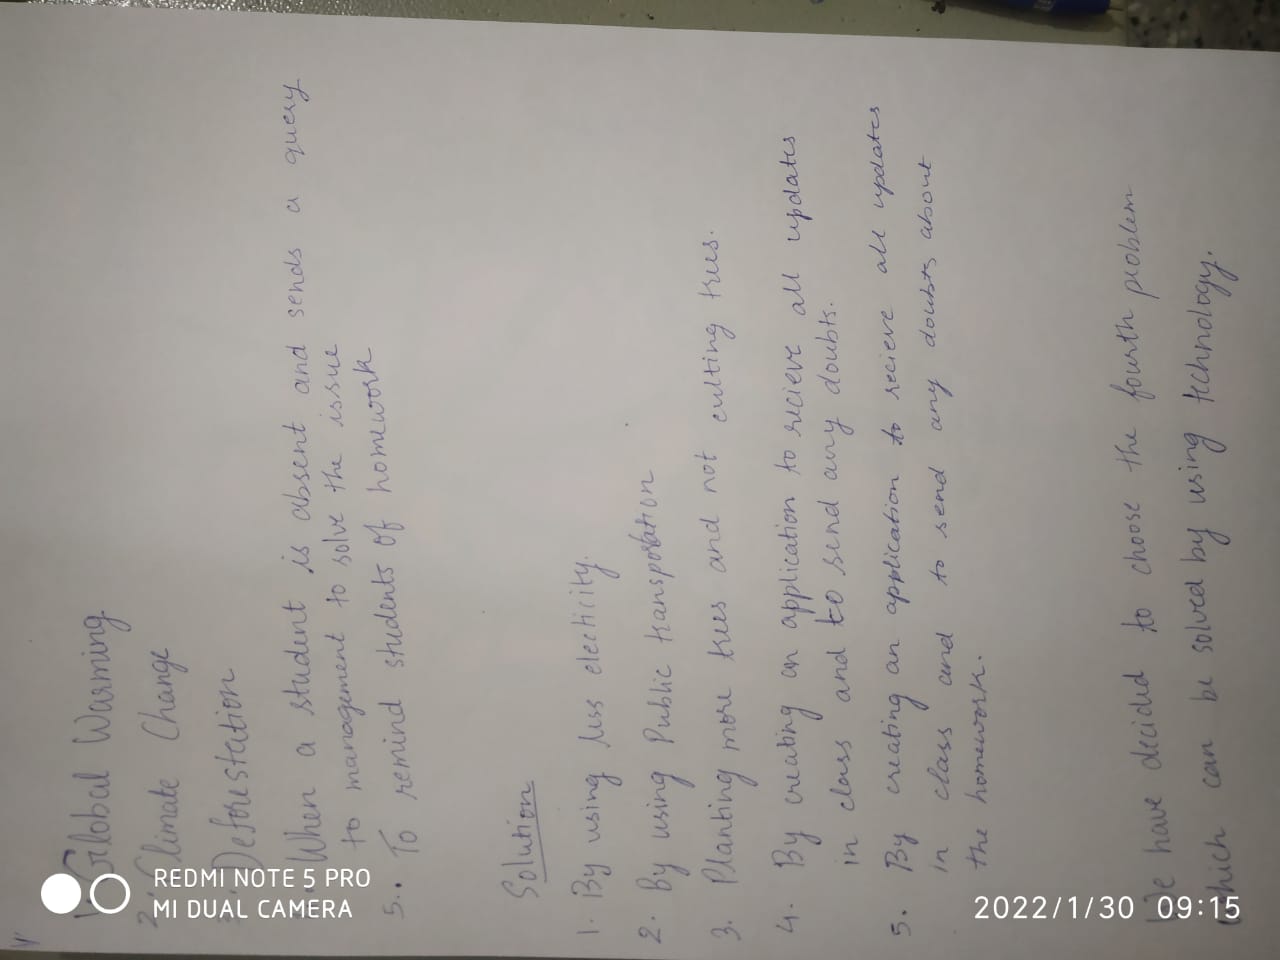 1. Global Warming
2. Climate Change
Deforestation
When a student is absent and sends a query
to management to solve the issue
5.. To remind students of homework
Solution
1. By using less electricity.
2. By using Public transportation
3. Planting more trees and not cutting trees.
4. By creating an application to recieve all updates
in class and to send any doubts.
5. By creating an application to recieve all updates
in class and to send any doubts about
the homework.
We have decided to choose the fourth problem
which can be solved by using technology.
REDMI NOTE 5 PRO
MI DUAL CAMERA
2022/1/30 09:15